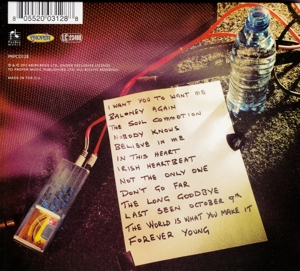 8 05520 03128 8
PRPCD128
MADE IN THE E.U.
PROPER
LC 23488
I WANT YOU TO WANT ME
BALONEY AGAIN
THE SOIL COMMOTION
NOBODY KNOWS
BELIEVE IN ME
IN THIS HEART
IRISH HEARTBEAT
NOT THE ONLY ONE
DON'T GO FAR
THE LONG GOODBYE
LAST SEEN OCTOBER 9TH
THE WORLD IS WHAT YOU MAKE IT
FOREVER YOUNG